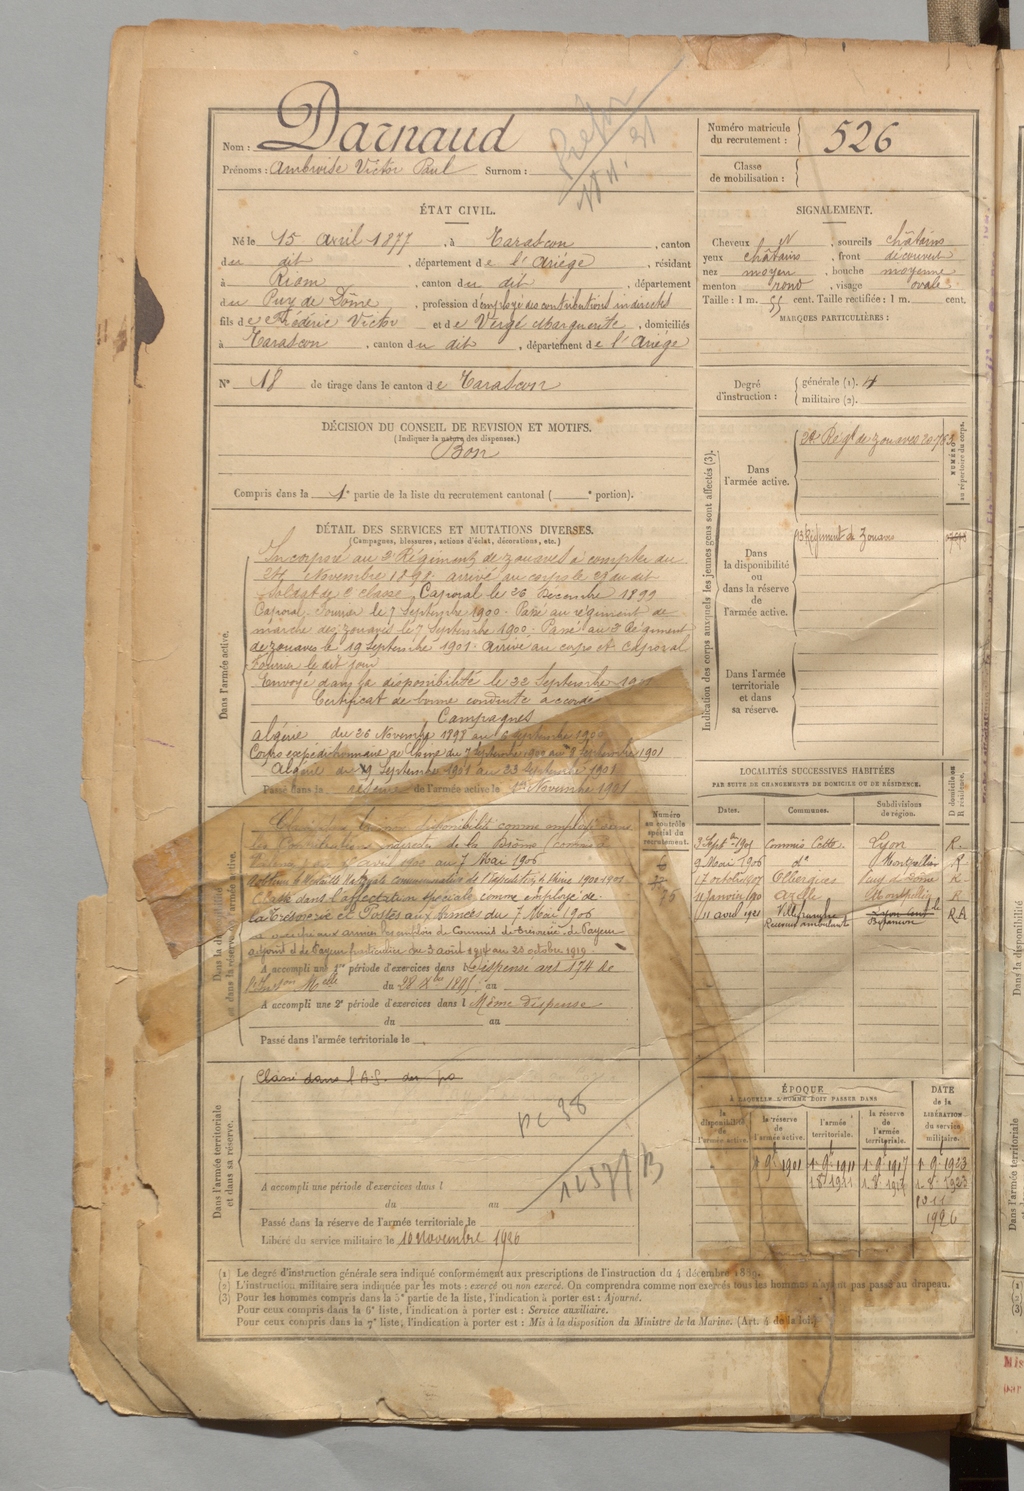 Nom : Darnaud
Prénoms : Ambroise Victor Paul Surnom :
Numéro matricule du recrutement : 526
Classe de mobilisation :
ÉTAT CIVIL.
Né le 15 avril 1877, à Tarascon, canton
du dit, département de l'Ariège, résidant
à Riom, canton du dit, département
du Puy de Dôme, profession d'employé des contributions indirectes
fils de Frédéric Victor et de Vergé Marguerite, domiciliés
à Tarascon, canton du dit, département de l'Ariège
SIGNALEMENT.
Cheveux , sourcils châtains
yeux châtains, front découvert
nez moyen, bouche moyenne
menton rond, visage ovale
Taille : 1 m. 55 cent. Taille rectifiée : 1 m. cent.
MARQUES PARTICULIÈRES :
N° 18 de tirage dans le canton de Tarascon
Degré d'instruction : générale (1). 4
militaire (2).
DÉCISION DU CONSEIL DE REVISION ET MOTIFS.
(Indiquer la nature des dispenses.)
Bon
Compris dans la 1e partie de la liste du recrutement cantonal ( e portion).
DÉTAIL DES SERVICES ET MUTATIONS DIVERSES.
(Campagnes, blessures, actions d'éclat, décorations, etc.)
Dans l'armée active.
Incorporé au 3e Régiment de zouaves à compter du
Novembre 1898 arrivé au corps le dudit
soldat de 2e classe, Caporal le 26 Décembre 1899
Caporal fourrier le 7 Septembre 1900. Passé au régiment de
marche des zouaves le 7 Septembre 1900. Passé au 3e Régiment
de zouaves le 19 Septembre 1901. arrivé au corps et Caporal
fourrier le dit jour
Envoyé dans la disponibilité le 22 Septembre 1901
Certificat de bonne conduite accordé
Campagnes
Algérie du 26 Novembre 1898 au 6 Septembre 1900
Corps expéditionnaire de Chine du 7 Septembre 1900 au 18 Septembre 1901
Algérie du 19 Septembre 1901 au 23 Septembre 1901
Passé dans la réserve de l'armée active le 1er Novembre 1901
Indication des corps auxquels les jeunes gens sont affectés (3).
Dans l'armée active.
3e Régt de zouaves
NUMÉROS au répertoire du corps.
Dans la disponibilité ou dans la réserve de l'armée active.
3e Régiment de Zouaves
Dans l'armée territoriale et dans sa réserve.
Dans la disponibilité et dans la réserve de l'armée active.
Numéro au contrôle spécial du recrutement.
disponibilité comme employé
de la Drôme
avril 1900 au 7 Mai 1906
Médaille commémorative de l'Expédition de Chine 1900-1901
Classé dans l'affectation spéciale comme employé de
la Trésorerie et Postes aux armées du 7 Mai 1906
aux armées les emplois de Commis de Trésorerie, de Payeur
adjoint et de Payeur particulier du 3 août 1914 au 23 octobre 1919.
A accompli une 1re période d'exercices dans Dispense art 174 de
du 28 Xbre 1895 au
A accompli une 2e période d'exercices dans l Même dispense
du au
Passé dans l'armée territoriale le
LOCALITÉS SUCCESSIVES HABITÉES
PAR SUITE DE CHANGEMENTS DE DOMICILE OU DE RÉSIDENCE.
Dates. Communes. Subdivisions de région. D domicile ou R résidence.
3 Septbre 1901 Lyon R.
9 Mai 1906 do Montpellier R
17 octobre 1907 Puy de Dôme R
11 Janvier Montpellier R
11 avril 1921 Villefranche Receveur ambulant Besançon RA
Dans l'armée territoriale et dans sa réserve.
Classé dans l'A.S. du
pc 38
A accompli une période d'exercices dans l
du au
Passé dans la réserve de l'armée territoriale, le
Libéré du service militaire le 10 novembre 1926
ÉPOQUE
À LAQUELLE L'HOMME DOIT PASSER DANS
la disponibilité de l'armée active. la réserve de l'armée active. l'armée territoriale. la réserve de l'armée territoriale.
DATE de la LIBÉRATION du service militaire.
1 9bre 1901 1 9bre 1911 1 9bre 1917 1 9 1923
1 8 1923
10 11
1926
(1) Le degré d'instruction générale sera indiqué conformément aux prescriptions de l'instruction du 4 décembre 1889.
(2) L'instruction militaire sera indiquée par les mots : exercé ou non exercé. On comprendra comme non exercés tous les hommes n'ayant pas passé au drapeau.
(3) Pour les hommes compris dans la 5e partie de la liste, l'indication à porter est : Ajourné.
Pour ceux compris dans la 6e liste, l'indication à porter est : Service auxiliaire.
Pour ceux compris dans la 7e liste, l'indication à porter est : Mis à la disposition du Ministre de la Marine. (Art. 4 de la loi.)